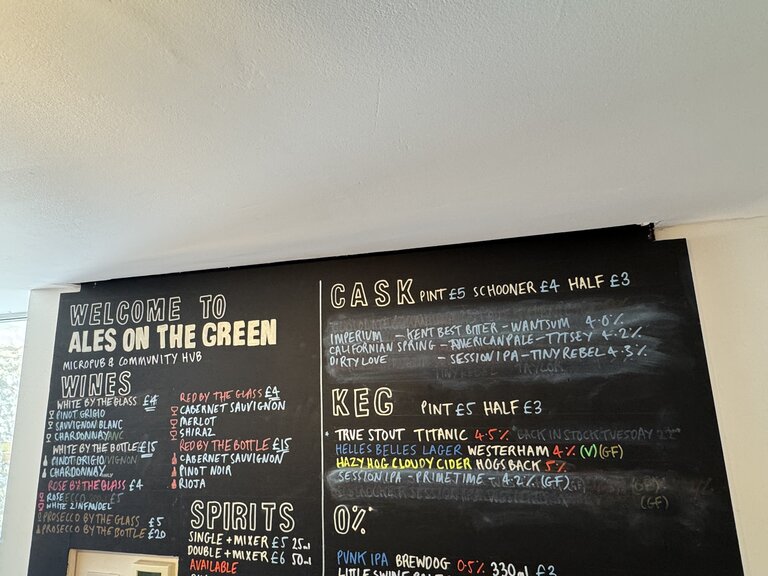 WELCOME TO
ALES ON THE GREEN
MICROPUB & COMMUNITY HUB
WINES
WHITE BY THE GLASS £4
PINOT GRIGIO
SAUVIGNON BLANC
CHARDONNAY
WHITE BY THE BOTTLE £15
PINOT GRIGIO
CHARDONNAY
ROSE BY THE GLASS £4
ROSE
WHITE ZINFANDEL
PROSECCO BY THE GLASS £5
PROSECCO BY THE BOTTLE £20
RED BY THE GLASS £4
CABERNET SAUVIGNON
MERLOT
SHIRAZ
RED BY THE BOTTLE £15
CABERNET SAUVIGNON
PINOT NOIR
RIOJA
SPIRITS
SINGLE + MIXER £5 25ml
DOUBLE + MIXER £6 50ml
AVAILABLE
CASK PINT £5 SCHOONER £4 HALF £3
IMPERIUM - KENT BEST BITTER - WANTSUM 4.0%
CALIFORNIAN SPRING - AMERICAN PALE - TITSEY 4.2%
DIRTY LOVE - SESSION IPA - TINY REBEL 4.3%
KEG PINT £5 HALF £3
TRUE STOUT TITANIC 4.5% BACK IN STOCK TUESDAY
HELLES BELLES LAGER WESTERHAM 4% (V) (GF)
HAZY HOG CLOUDY CIDER HOGS BACK 5%
SESSION IPA - PRIME TIME - 4.2% (GF)
(GF)
0%
PUNK IPA BREWDOG 0.5% 330ml £3